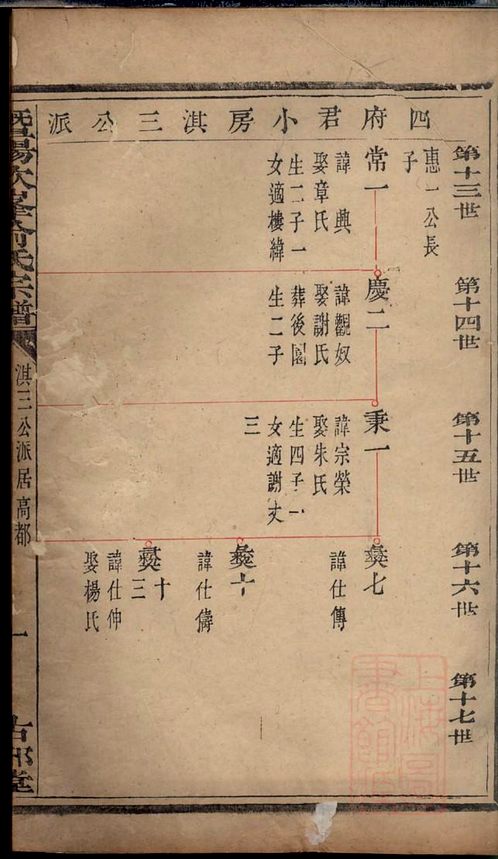 四府君小房淇三公派
第十三世
惠一公長
子
常一
諱典
娶章氏
生二子一
女適樓緯
第十四世
慶二
諱觀奴
娶謝氏
葬後園
生二子
第十五世
秉一
諱宗榮
娶朱氏
生四子一
女適謝丈
三
第十六世
彝七
諱仕傳
彝十
諱仕儔
彝十
三
諱仕仲
娶楊氏
第十七世
暨陽次峯俞氏宗譜
淇三公派居高都
一